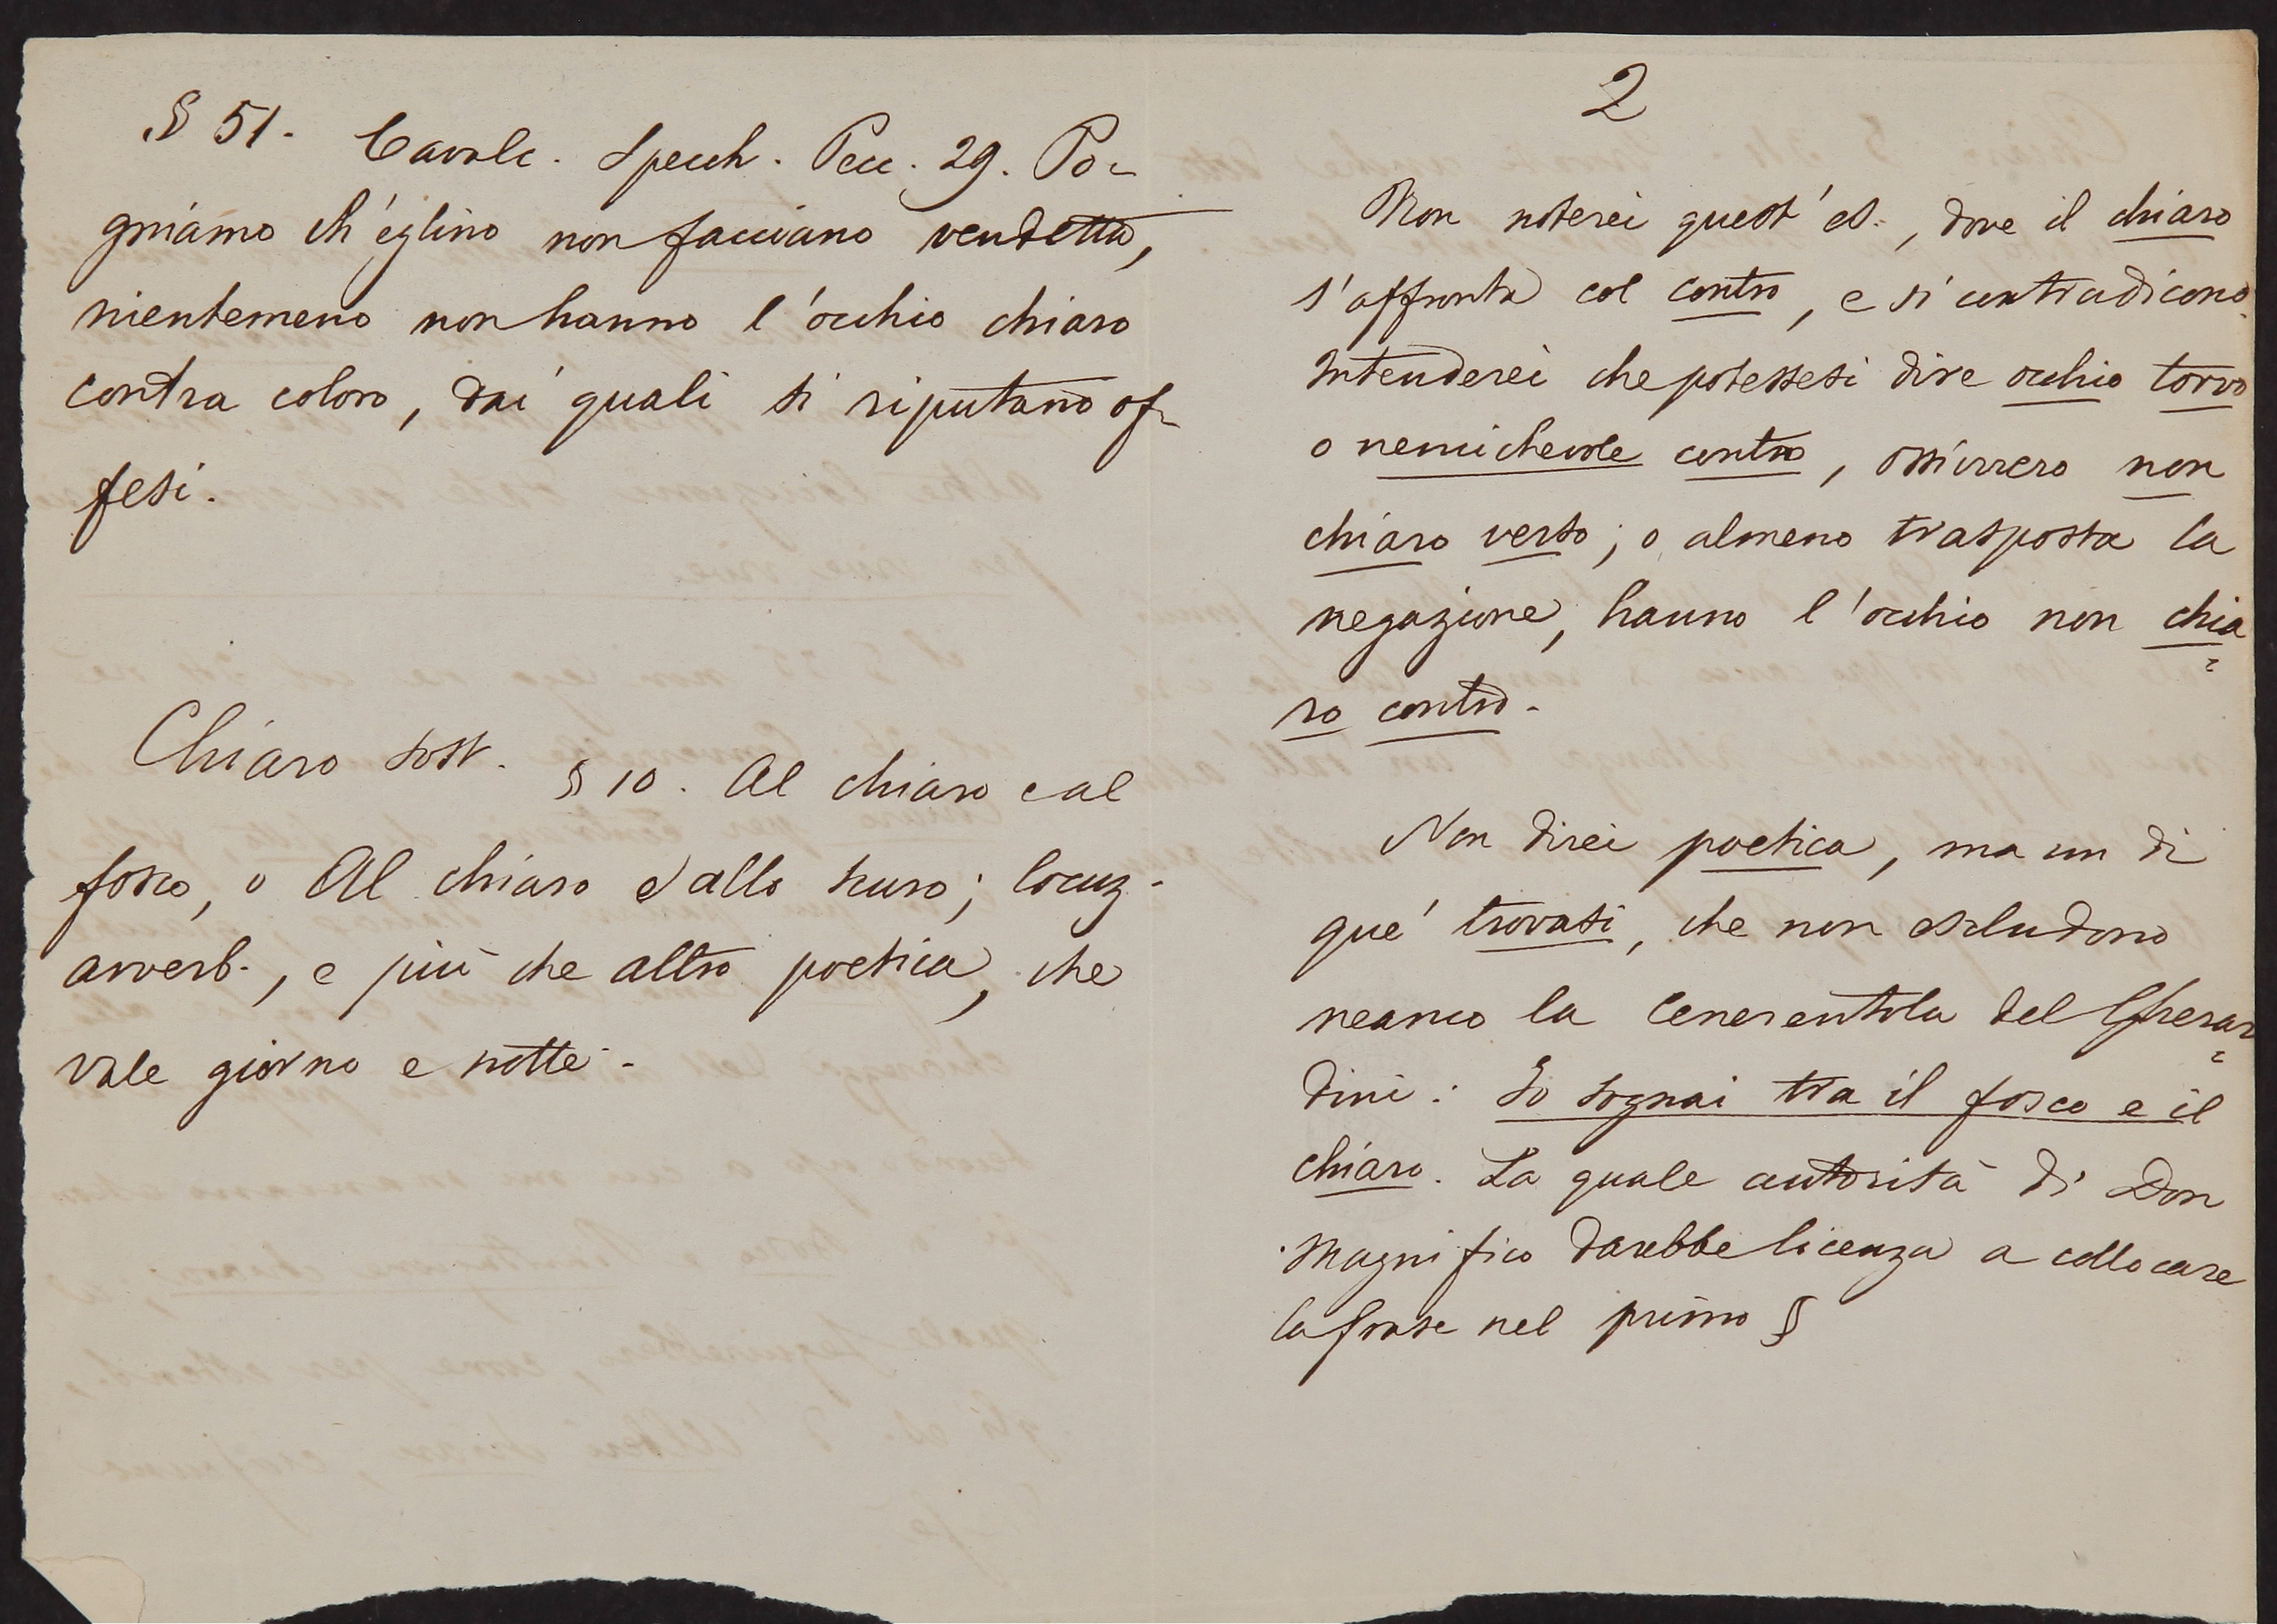 § 51. Cavalc. Specch. Pecc. 29. Po-
gniamo ch'eglino non facciano vendetta,
nientemeno non hanno l'occhio chiaro
contra coloro, dai quali si riputano of-
fesi.
Chiaro sost. § 10. Al chiaro e al
fosco, o Al chiaro e allo scuro; locuz.
avverb., e più che altro poetica, che
vale giorno e notte.
2
Non noterei quest'es., dove il chiaro
s'affronta col contro, e si contradicono.
Intenderei che potessesi dire occhio torvo
o nemichevole contro, ossivvero non
chiaro verso; o almeno trasposta la
negazione, hanno l'occhio non chia=
ro contro.
Non direi poetica, ma un di
que' trovati, che non escludono
neanco la Cenerentola del Gherar=
dini: Io sognai tra il fosco e il
chiaro. La quale autorità di Don
Magnifico darebbe licenza a collocare
la frase nel primo §